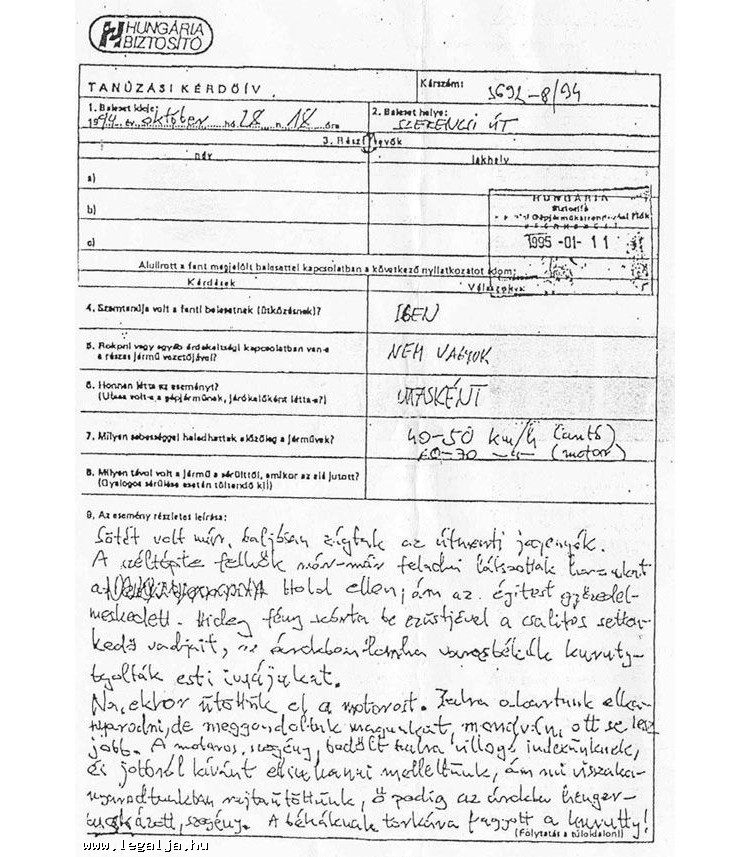 HUNGÁRIA
BIZTOSÍTÓ
TANÚZÁSI KÉRDŐÍV
Kárszám:
3692-8/94
1. Baleset ideje:
1994 év október hó 28 n. 18 óra
2. Baleset helye:
SZERENCSI ÚT
3. Résztvevők
név
lakhely
a)
b)
c)
HUNGÁRIA
Biztosító
1995 -01- 11
Alulírott a fent megjelölt balesettel kapcsolatban a következő nyilatkozatot adom:
Kérdések
Válaszok
4. Szemtanúja volt a fenti balesetnek (ütközésnek)?
IGEN
5. Rokoni vagy egyéb érdekeltségi kapcsolatban van-e
a részes jármű vezetőjével?
NEM VAGYOK
6. Honnan látta az eseményt?
(Utasa volt-e a gépjárműnek, járókelőként látta-e?)
UTASKÉNT
7. Milyen sebességgel haladhattak előzőleg a járművek?
40-50 km/h (autó)
60-70 -"- (motor)
8. Milyen távol volt a jármű a sérülttől, amikor az elé jutott?
(Gyalogos sérülése esetén töltendő ki!)
9. Az esemény részletes leírása:
Sötét volt már, baljósan zúgtak az útmenti jegenyék.
A széltépte felhők már-már feladni látszottak harcukat
a Hold ellen, ám az égitest győzedel-
meskedett. Hideg fény szórta be ezüstjével a csalitos setten-
kedő vadjait, az árokban lomha varasbékák kuruty-
tyolták esti imájukat.
Na, ekkor ütöttük el a motorost. Balra akartunk elka-
nyarodni, de meggondoltuk magunkat, mondván, ott se lesz
jobb. A motoros, szegény, bedőlt balra villogó indexünknek,
és jobbról kívánt elsuhanni mellettünk, ám mi visszaka-
nyarodtunkban rajtaütöttünk, ő pedig az árokba henger-
buckázott, szegény. A békáknak torkára fagyott a kurutty!
(Folytatás a túloldalon!)
www.legalja.hu